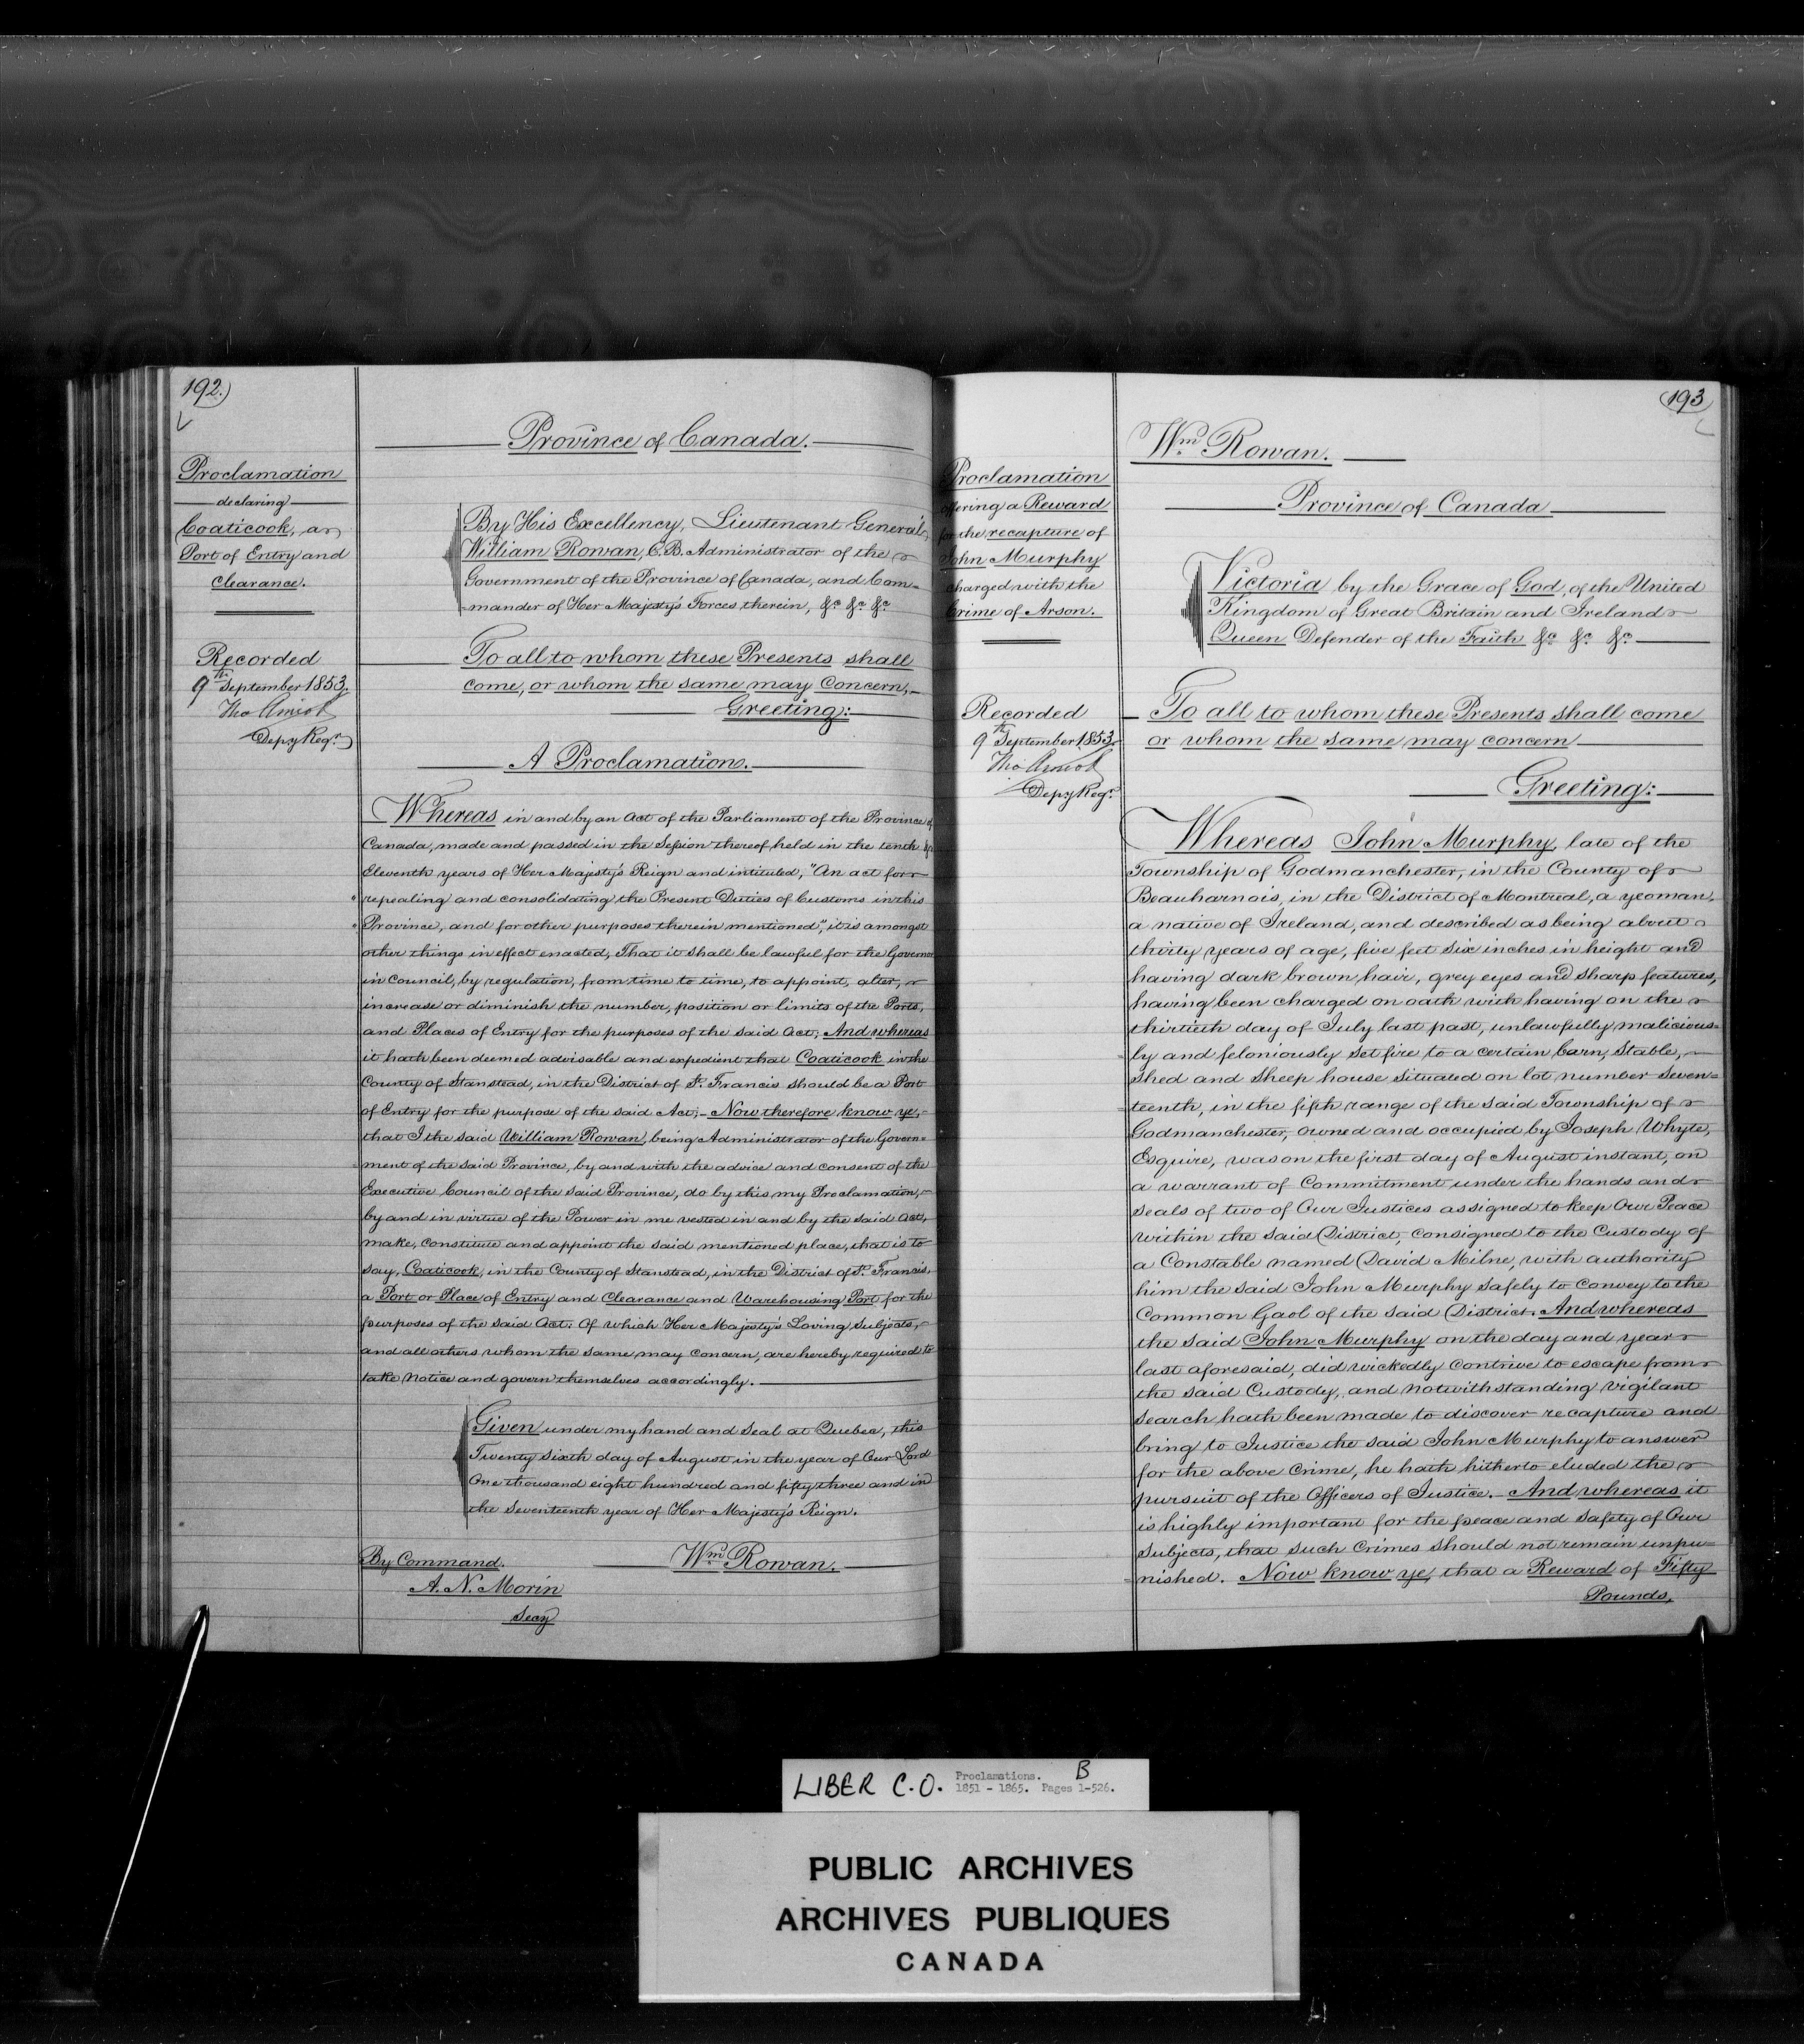 192.)
Proclamation
declaring
Coaticook, a
Port of Entry and
Clearance.
Recorded
9th September 1853.
Tho Amiot
Depy Regr
Province of Canada.
By His Excellency, Lieutenant General,
William Rowan, C.B. Administrator of the
Government of the Province of Canada, and Com-
-mander of Her Majesty's Forces therein, &c &c &c
To all to whom these Presents shall
come, or whom the same may Concern,
Greeting:
A Proclamation.
Whereas in and by an Act of the Parliament of the Province of
Canada, made and passed in the Session thereof held in the tenth &
Eleventh years of Her Majesty's Reign and intituled, "An act for
" repealing and consolidating the Present Duties of Customs in this
" Province, and for other purposes therein mentioned", it is amongst
other things in effect enacted, That it shall be lawful for the Governor
in Council, by regulation, from time to time, to appoint, alter,
increase or diminish the number, position or limits of the Ports,
and Places of Entry for the purposes of the said Act; And whereas
it hath been deemed advisable and expedient that Coaticook in the
County of Stanstead, in the District of St. Francis should be a Port
of Entry for the purpose of the said Act;- Now therefore know ye,
that I the said William Rowan, being Administrator of the Govern=
=ment of the said Province, by and with the advice and consent of the
Executive Council of the said Province, do by this my Proclamation,
by and in virtue of the Power in me vested in and by the said Act,
make, Constitute and appoint the said mentioned place, that is to
say, Coaticook, in the County of Stanstead, in the District of St. Francis,
a Port or Place of Entry and Clearance and Warehousing Port for the
purposes of the said Act: Of which Her Majesty's Loving Subjects,
and all others whom the same may Concern, are hereby required to
take Notice and govern themselves accordingly.
Given under my hand and Seal at Quebec, this
Twenty Sixth day of August in the year of Our Lord
One thousand eight hundred and fifty three and in
the Seventeenth year of Her Majesty's Reign.
By Command. Wm Rowan.
A. N. Morin
Secy
193
Proclamation
offering a Reward
for the recapture of
John Murphy
charged with the
Crime of Arson.
Recorded
9th September 1853.
Tho Amiot
Depy Regr
Wm Rowan.
Province of Canada
Victoria by the Grace of God, of the United
Kingdom of Great Britain and Ireland
Queen Defender of the Faith &c &c &c
To all to whom these Presents shall come
or whom the same may concern
Greeting:
Whereas John Murphy, late of the
Township of Godmanchester, in the County of
Beauharnois, in the District of Montreal, a yeoman,
a native of Ireland, and described as being about
thirty years of age, five feet six inches in height and
having dark brown hair, grey eyes and sharp features,
having been charged on oath with having on the
thirtieth day of July last past, unlawfully malicious=
=ly and feloniously set fire to a certain barn, Stable,
Shed and Sheep house situated on lot number Seven=
=teenth, in the fifth range of the said Township of
Godmanchester, owned and occupied by Joseph Whyte,
Esquire, was on the first day of August instant, on
a warrant of Commitment under the hands and
Seals of two of Our Justices assigned to keep Our Peace
within the said District, Consigned to the Custody of
a Constable named David Milne, with authority
him the said John Murphy safely to Convey to the
Common Gaol of the said District. And whereas
the said John Murphy on the day and year
last aforesaid, did wickedly Contrive to escape from
the said Custody, and notwithstanding vigilant
Search hath been made to discover recapture and
bring to Justice the said John Murphy to answer
for the above Crime, he hath hitherto eluded the
pursuit of the Officers of Justice. And whereas it
is highly important for the peace and Safety of Our
Subjects, that such Crimes should not remain unpu=
=nished. Now know ye, that a Reward of Fifty
Pounds,
LIBER C.O. Proclamations. B
1851 - 1865. Pages 1-526.
PUBLIC ARCHIVES
ARCHIVES PUBLIQUES
CANADA